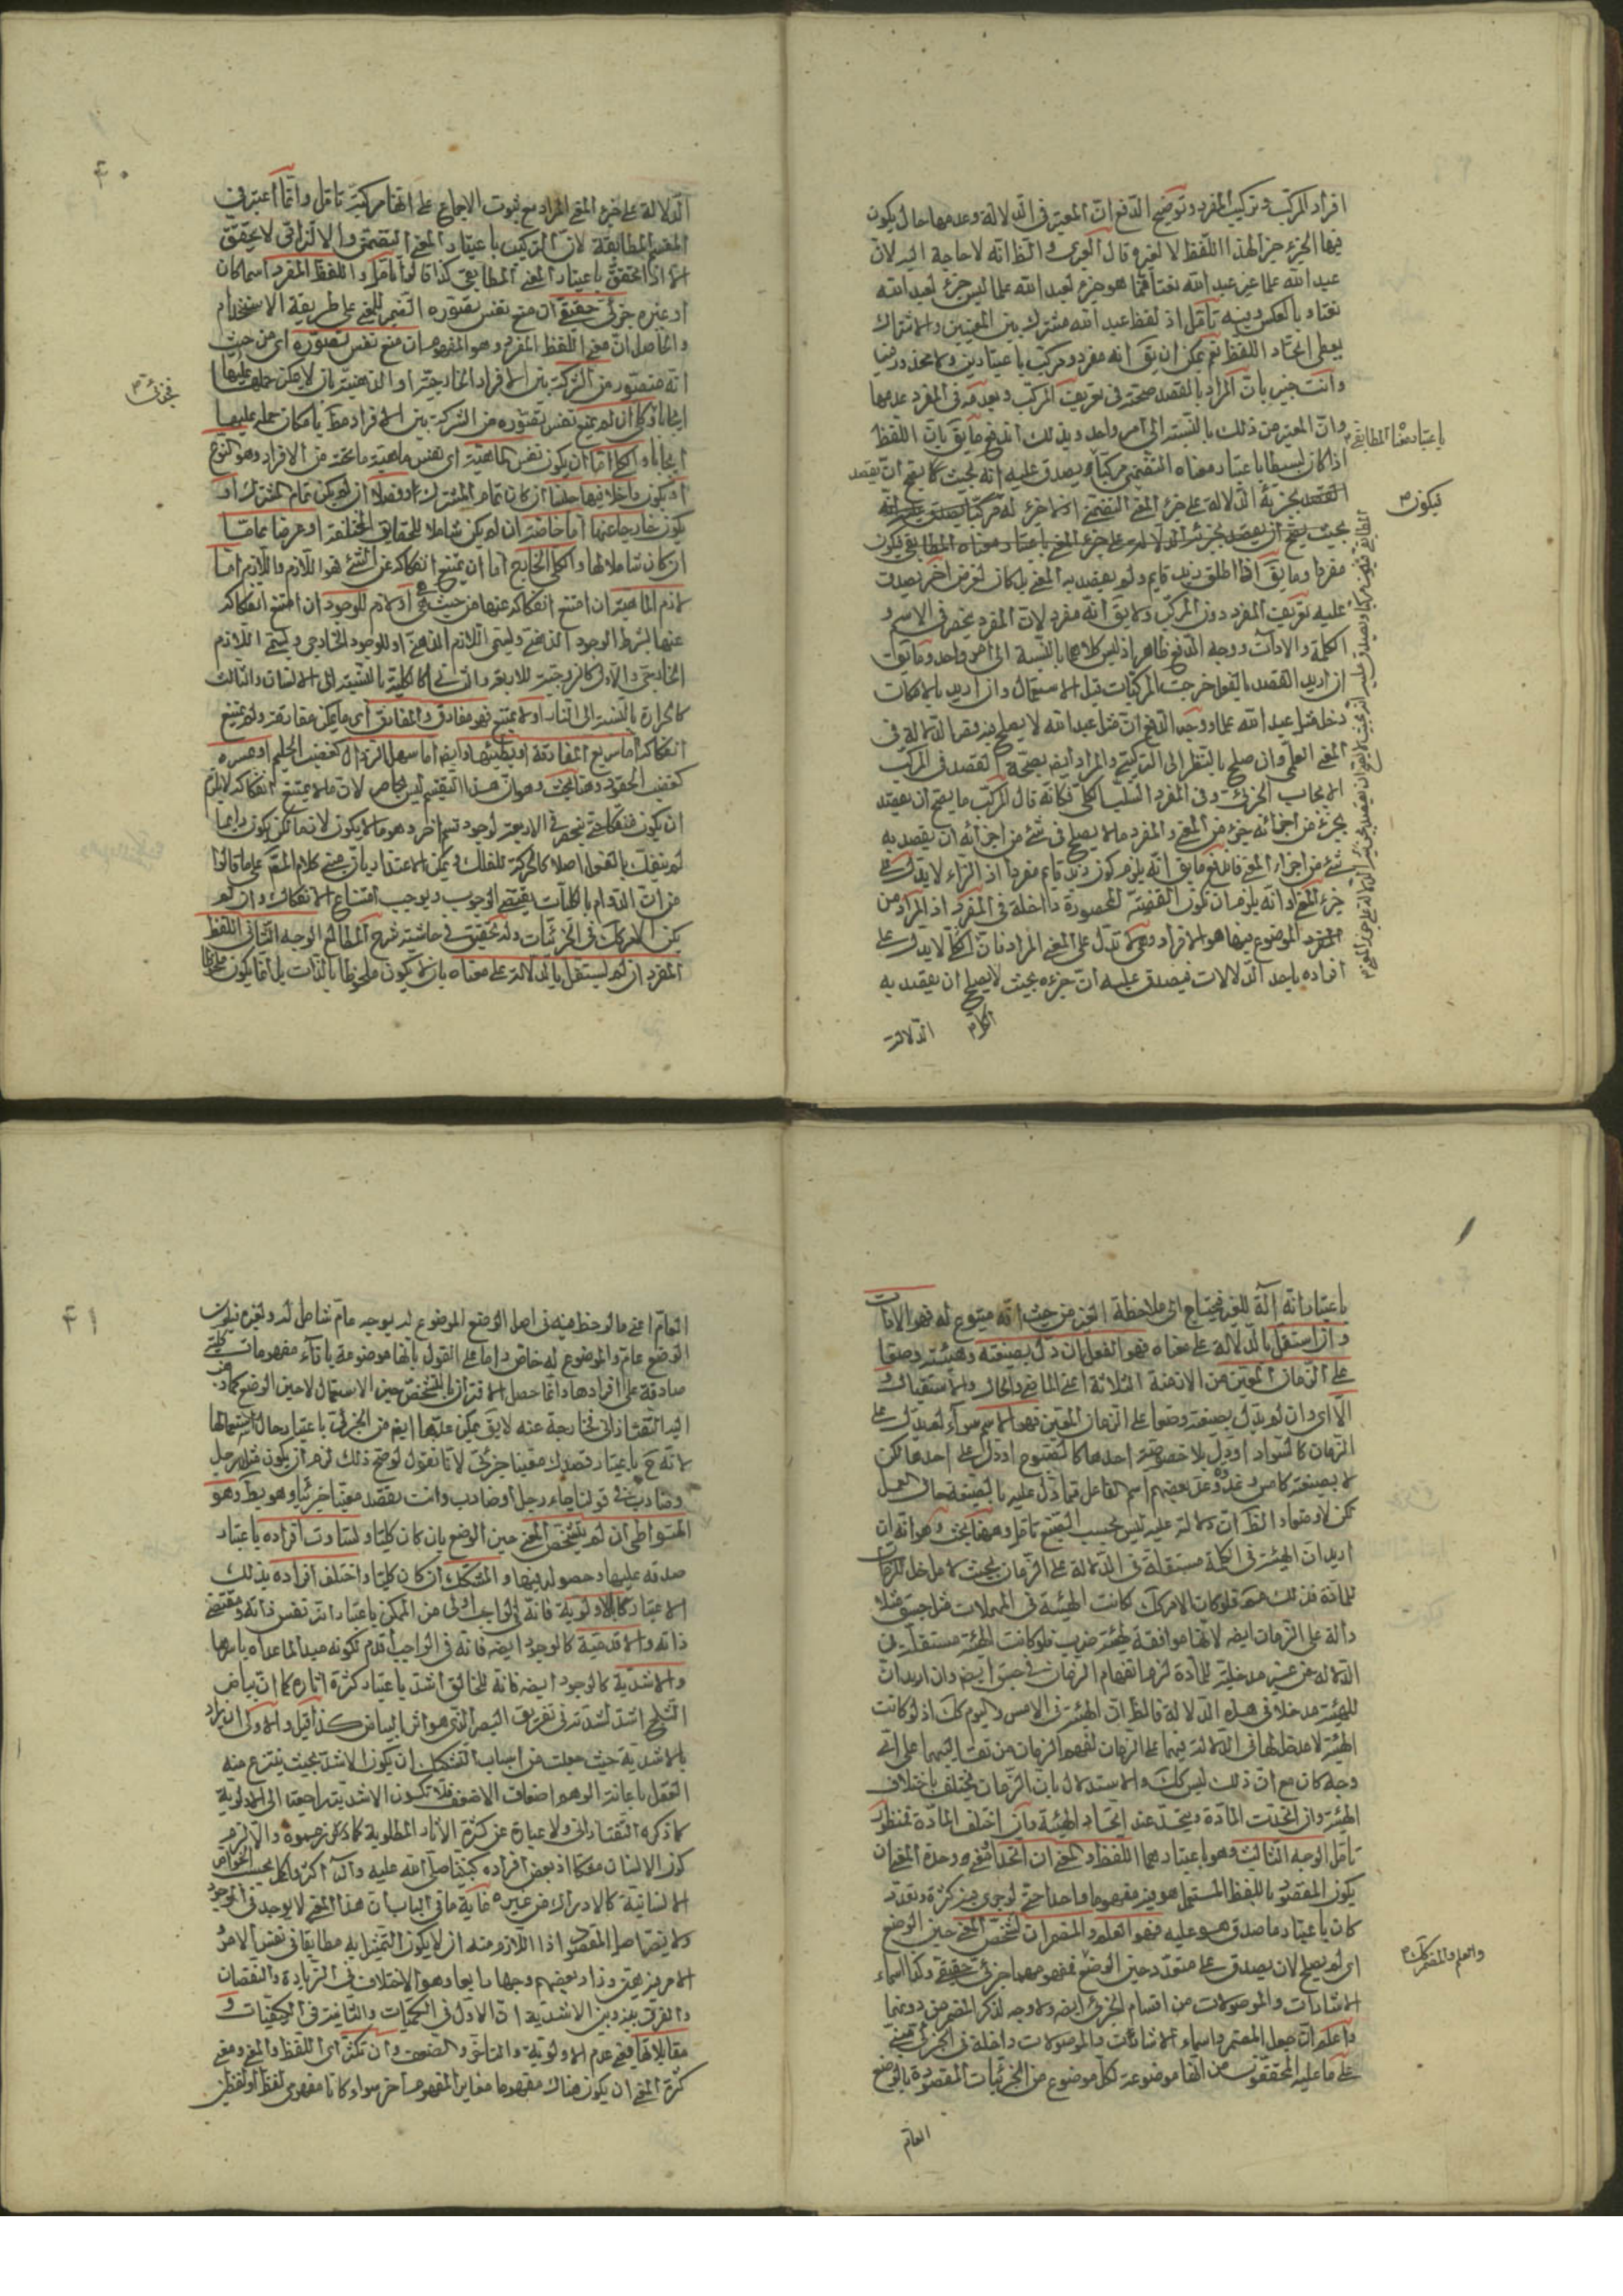 افراد المركب وتركيب المفرد وتوضيح الدفع ان المعتبر فى الدلالة وعدمها حال يكون
فيها الجزء جزء لهذا اللفظ لا لغيره قال والظ انه لا حاجة اليه لان
عبد الله علما غير عبد الله نعتا فما هو جزء لعبد الله علما ليس جزء لعبد الله
نعتا وبالعكس وفيه تأمل اذ لفظ عبد الله مشترك بين المعنيين والاشتراك
يعطى اتحاد اللفظ نعم يمكن ان يق انه مفرد ومركب باعتبارين ولا محذور فيه
وانت خبير بان المراد بالقصد صحته فى تعريف المركب وبعدمه فى المفرد عدمها
وان المعتبر من ذلك بالنسبة الى امر واحد وبذلك اندفع ما يق بان اللفظ
باعتبار معناه المطابقى
اذا كان بسيطا باعتبار معناه التضمنى مركبا يصدق عليه انه بحيث يصح ان يقصد
بجزئه الدلالة على جزء المعنى التضمنى
فيكون
بحيث يصح ان يقصد بجزئه الدلالة على جزء المعنى باعتبار معناه المطابقى فيكون
مفردا وما يق اذا اطلق زيد قايم ولم يقصد به المعنى بل كان لغرض اخر يصدق
عليه تعريف المفرد دون المركب ولا يق انه مفرد لان المفرد ينحصر فى الاسم و
الكلمة والاداة ووجه الدفع ظاهر اذ ليس كلاهما بالنسبة الى امر واحد وما يق
ان اريد القصد بالفعل خرجت المركبات قبل الاستعمال وان اريد بالامكان
دخل مثل عبد الله علما ووجه الدفع ان مثل عبد الله لا يصلح جزؤه الدلالة فى
المعنى العلمى وان صلح بالنظر الى التركيبى والمراد ايضا بصحة القصد فى المركب
الايجاب الجزئى وفى المفرد السلب الكلى فكانه قال المركب ما يصح ان يقصد
بجزء من اجزائه جزء من المعنى والمفرد ما لا يصلح فى شئ من اجزائه ان يقصد به
شئ من اجزاء المعنى فاندفع ما يق انه يلزم كون زيد قايم مفردا اذ الزاء لا يدل على
جزء المعنى وانه يلزم ان تكون القضية المحصورة داخلة فى المفرد اذ المراد من
الموضوع فيها هو الافراد وهى لا تدل على المعنى المراد فان الكلى لا يدل على
افراده باحد الدلالات فيصدق عليه ان جزءه بحيث لا يصلح ان يقصد به
الدلالة
٤٠
الدلالة على جزء المعنى المراد مع ثبوت الاجماع على انها مركبة تأمل وانما اعتبر فى
المقسم المطابقة لان التركيب باعتبار المعنى التضمنى والالتزامى لا يتحقق
الا اذا تحقق باعتبار المعنى المطابقى كذا قالوا تأمل واللفظ المفرد اسما كان
او غيره جزئى حقيقى ان منع نفس تصوره الضمير للمعنى على طريقة الاستخدام
والحاصل ان معنى اللفظ المفرد وهو المفهوم ان منع نفس تصوره اى من حيث
انه متصور من الشركة بين الافراد الخارجية او الذهنية بان لا يمكن حملها عليها
فجزئى
ايجابا وكلى ان لم يمنع نفس تصوره من الشركة بين الافراد بامكان حمله عليها
ايجابا والكلى اما ان يكون نفس الماهية اى نفس ماهية ما تحته من الافراد وهو النوع
او يكون داخلا فيها جنسا ان كان تمام المشترك او فصلا ان لم يكن تمام المشترك او
يكون خارجا عنها اما خاصة ان لم يكن شاملا للحقايق المختلفة او عرضا عاما
ان كان شاملا لها والكلى الخارج اما ان يمتنع انفكاكه عن الشئ فهو اللازم واللازم اما
لازم الماهية ان امتنع انفكاكه عنها من حيث هى او لازم للوجود ان امتنع انفكاكه
عنها بشرط الوجود الذهنى ويسمى اللازم الذهنى او للوجود الخارجى ويسمى اللازم
الخارجى والاول كالزوجية للاربعة والثانى كالكلية بالنسبة الى الانسان والثالث
كالحرارة بالنسبة الى النار او لا يمتنع فهو مفارق والمفارق اى ما يمكن مفارقته ولم يمتنع
انفكاكه اما سريع المفارقة او بطيئها وايضا اما سهل الزوال كغضب الحليم او عسره
كغضب الحقود وهنا بحث وهو ان هذا التقسيم ليس بحاصر لان ما لا يمتنع انفكاكه لا يلزم
ان يكون منفكا حتى ينحصر فى الاربعة لوجود قسم اخر وهو ما لا يكون لازما لكن يكون دايما
لم ينفك بالفعل اصلا كالحركة للفلك ويمكن الاعتذار بان مبنى كلام المص على ما قالوا
من ان الدوام بالكليات يقتضى الوجوب ويوجب امتناع الانفكاك وان لم
يكن الامر كك فى الجزئيات وله تحقيق فى حاشية شرح المطالع الوجه الثانى اللفظ
المفرد ان لم يستقل بالدلالة على معناه بان لا يكون ملحوظا بالذات بل انما يكون ملحوظا
باعتبار انه آلة للغير فيحتاج الى ملاحظة الغير من حيث انه متبوع له فهو الاداة
وان استقل بالدلالة على معناه فهو الفعل ان دل بصيغته وهيئته وضعا
على الزمان المعين من الازمنة الثلاثة اعنى الماضى والحال والاستقبال و
الا اى وان لم يدل بصيغته وضعا على الزمان المعين فهو الاسم سواء لم يدل على
الزمان كالسواد او دل بلا خصوصية احدها كالصبوح او دل على احدها لكن
لا بصيغته كامس وغد وعد بعضهم اسم الفاعل مما دل عليه بالصيغة حال العمل
لكن لا وضعا والظ ان دلالته عليه ليس بحسب تأمل وههنا بحث وهو انه ان
اريد ان الهيئة فى الكلمة مستقلة فى الدلالة على الزمان بحيث لا مدخل
للمادة فى ذلك فلو كان الامر كك كانت الهيئة فى المهملات مثل جسق مثلا
دالة على الزمان ايضا لانها موافقة لهيئة ضرب فلو كانت الهيئة مستقلة فى
الدلالة من غير مدخلية للمادة لزم انفهام الزمان فى جسق ايضا وان اريد ان
للهيئة مدخلا فى هذه الدلالة فالظ ان الهيئة فى الامس واليوم كك اذ لو كانت
الهيئة لا مدخل لها فى الدلالة فيهما على الزمان لفهم الزمان من تقاليبهما على اى
وجه كان مع ان ذلك ليس كك والاستدلال بان الزمان يختلف باختلاف
الهيئة وان اتحدت المادة ويتحد عند اتحاد الهيئة وان اختلف المادة منظور
تأمل الوجه الثالث وهو باعتبارهما اللفظ والمعنى ان اتحدا فمع وحدة المعنى ان
يكون المقصود باللفظ المستعمل هو فيه مفهوما واحدا حتى لو جرى فيه كثرة وتعدد
كان باعتبار ما صدق هو عليه فهو العلم والمضمرات لتشخص المعنى حين الوضع
والعلم والمضمر كك
اى لم يصلح لان يصدق على متعدد حين الوضع فمفهومهما جزئى حقيقى وكذا اسماء
الاشارات والموصولات من اقسام الجزئى ايضا ولا وجه لذكر المضمر من دونهما
واعلم ان جعل المضمر واسماء الاشارات والموصولات داخلة فى الجزئى مبنى
على ما عليه المحققون من انها موضوعة لكل موضوع من الجزئيات المقصودة بالوضع
العام
٤١
العام اعنى ما لوحظ فيه فى اصل الوضع الموضوع له بوجه عام شامل له ولغيره فيكون
الوضع عام والموضوع له خاص واما على القول بانها موضوعة بازاء مفهومات كلية
صادقة على افرادها وانما حصل الاقتران بالتشخص حين الاستعمال لا حين الوضع كما ذهب
اليه التفتازانى فخارجة عنه لا يق يمكن عدها ايضا من الجزئى باعتبار حال استعمالها
لانه ح باعتبار قصدك معينا جزئى لانا نقول لو صح ذلك لزم ان يكون مثل رجل
وضارب فى قولنا جاء رجل او ضارب وانت تقصد معينا جزئيا وهو بط وهو
المتواطى ان لم يتشخص المعنى حين الوضع بان كان كليا وتساوت افراده باعتبار
صدقه عليها وحصوله فيها والمشكك ان كان كليا واختلف افراده بذلك
الاعتبار كالاولوية فانه فى الواجب اولى من الممكن باعتبار انه نفس ذاته ومقتضى
ذاته والاقدمية كالوجود ايضا فانه فى الواجب اقدم لكونه مبدا لما عداه
والاشدية كالوجود ايضا فانه للخالق اشد باعتبار كثرة اثاره كما ان بياض
الثلج اشد لشدته فى تفريق البصر الذى هو اثر البياض كذا قيل والاولى ان يراد
بالاشدية حيث جعلت من اسباب التشكيك ان يكون الاشد بحيث ينتزع منه
العقل باعانة الوهم اضعاف الاضعف فلا تكون الاشدية راجعة الى الاولوية
كما ذكره التفتازانى ولا عبارة عن كثرة الاثار المطلوبة كما ذكر والا لزم
كون الانسان مشككا اذ بعض افراده كنبينا صلى الله عليه وآله اكثر واكمل بحسب الخواص
الانسانية كالادراك من غيره غاية ما فى الباب ان هذا المعنى لا يوجد فى الوجود
ولا ينتقض اصل المقصود اذ اللازم منه ان لا يكون التمثيل به مطابقا فى نفس الامر
الامر فيه هين وزاد بعضهم وجها رابعا وهو الاختلاف فى الزيادة والنقصان
والفرق بينه وبين الاشدية ان الاول فى الكميات والثانية فى الكيفيات و
مقابلاتها فمع عدم الاولوية والتأخر والضعف وان تكثر اى اللفظ والمعنى ومعنى
كثرة المعنى ان يكون هناك مفهوم مغاير لمفهوم اخر سواء كانا مفهومى لفظ او لفظين